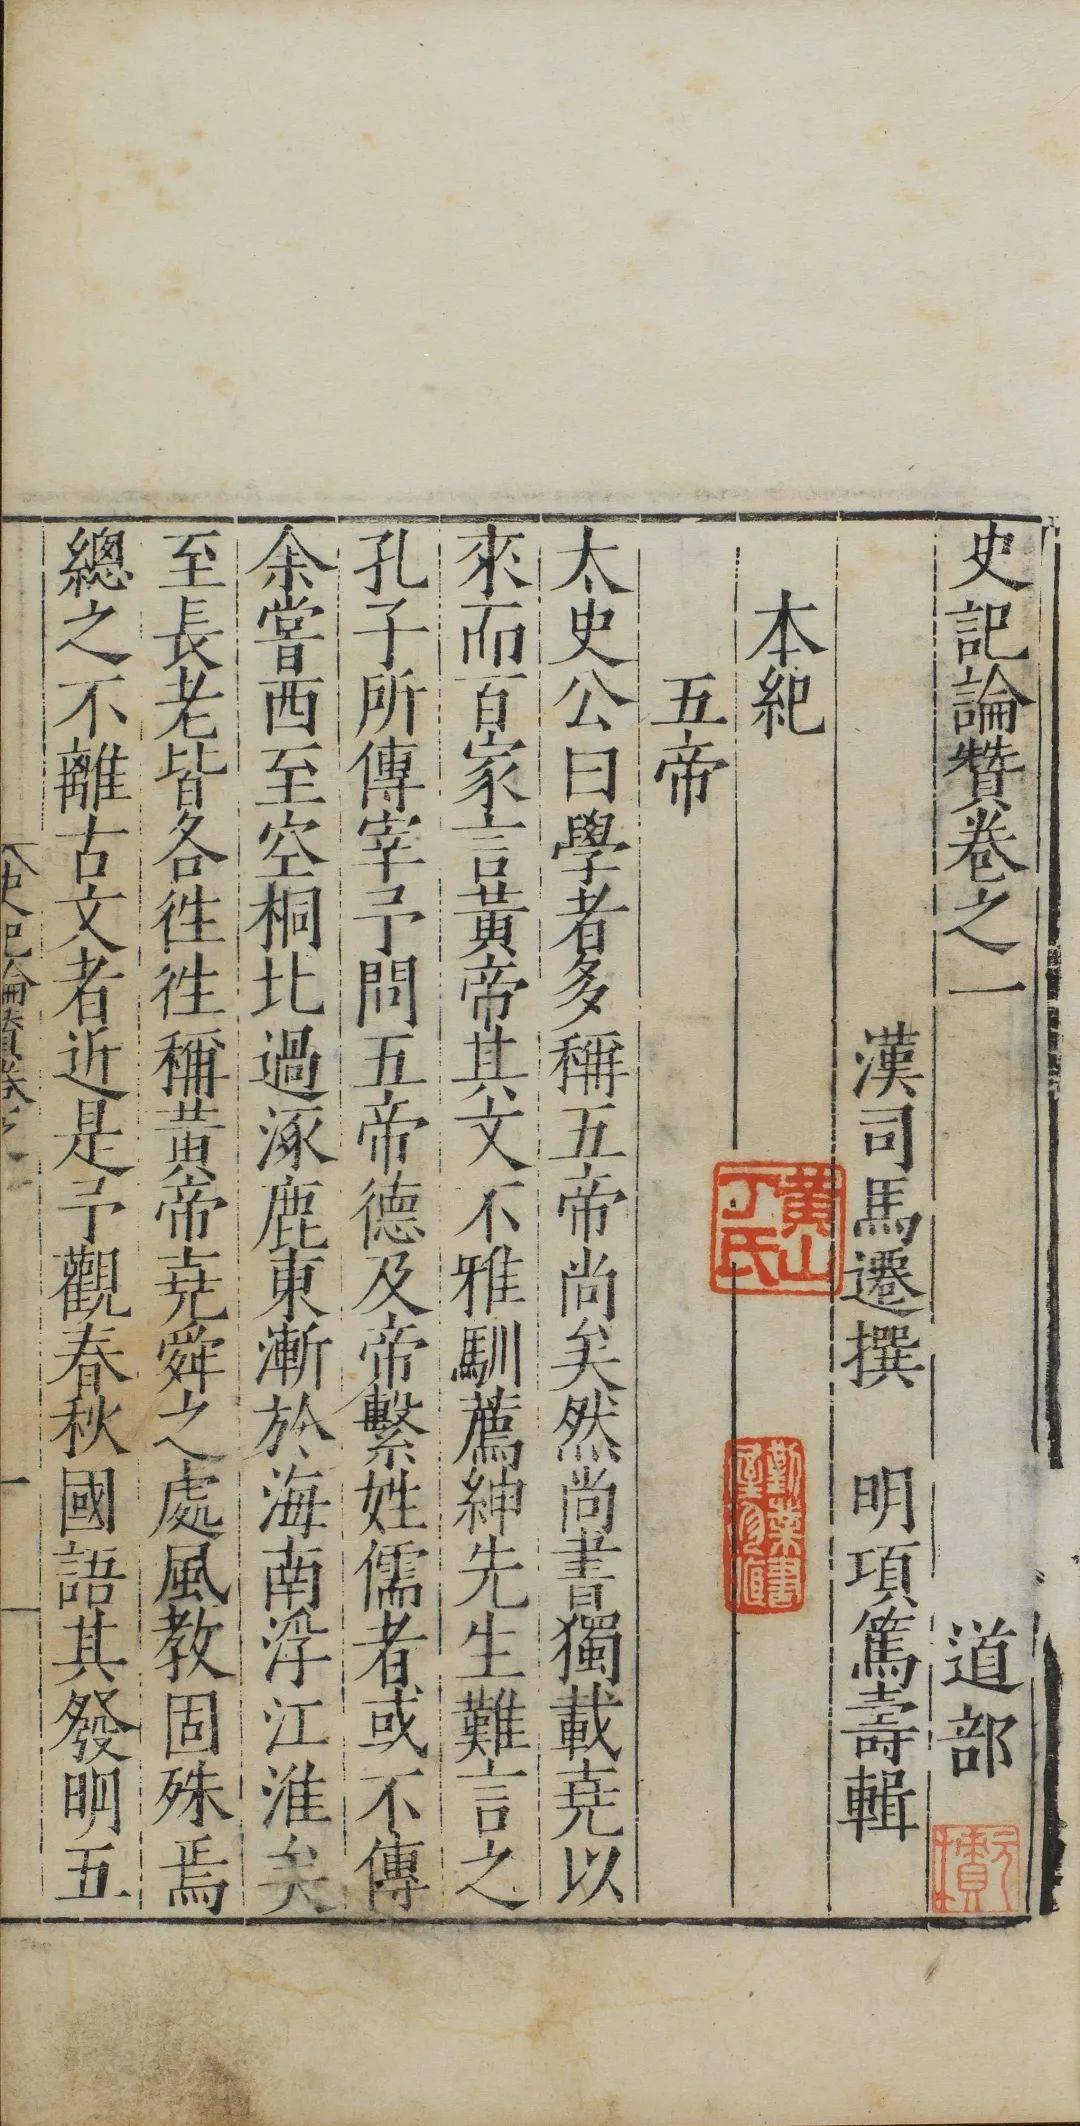 史記論贊卷之一 道部
漢司馬遷撰 明項篤壽輯
本紀
五帝
太史公曰學者多稱五帝尚矣然尚書獨載堯以
來而百家言黃帝其文不雅馴薦紳先生難言之
孔子所傳宰予問五帝德及帝繫姓儒者或不傳
余嘗西至空桐北過涿鹿東漸於海南浮江淮矣
至長老皆各徃徃稱黃帝堯舜之處風教固殊焉
總之不離古文者近是予觀春秋國語其發明五
史記論贊卷之一
一
黃山
丁氏